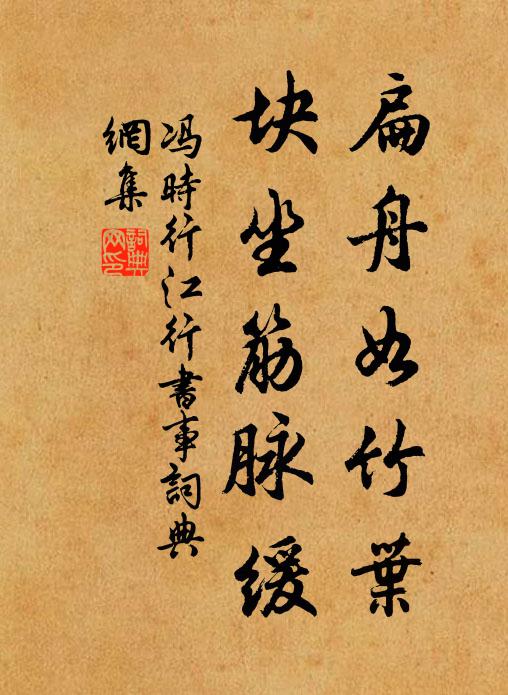 扁舟如竹葉
块坐筋脉缓
冯時行江行書事詞典
網集
詞典
网印